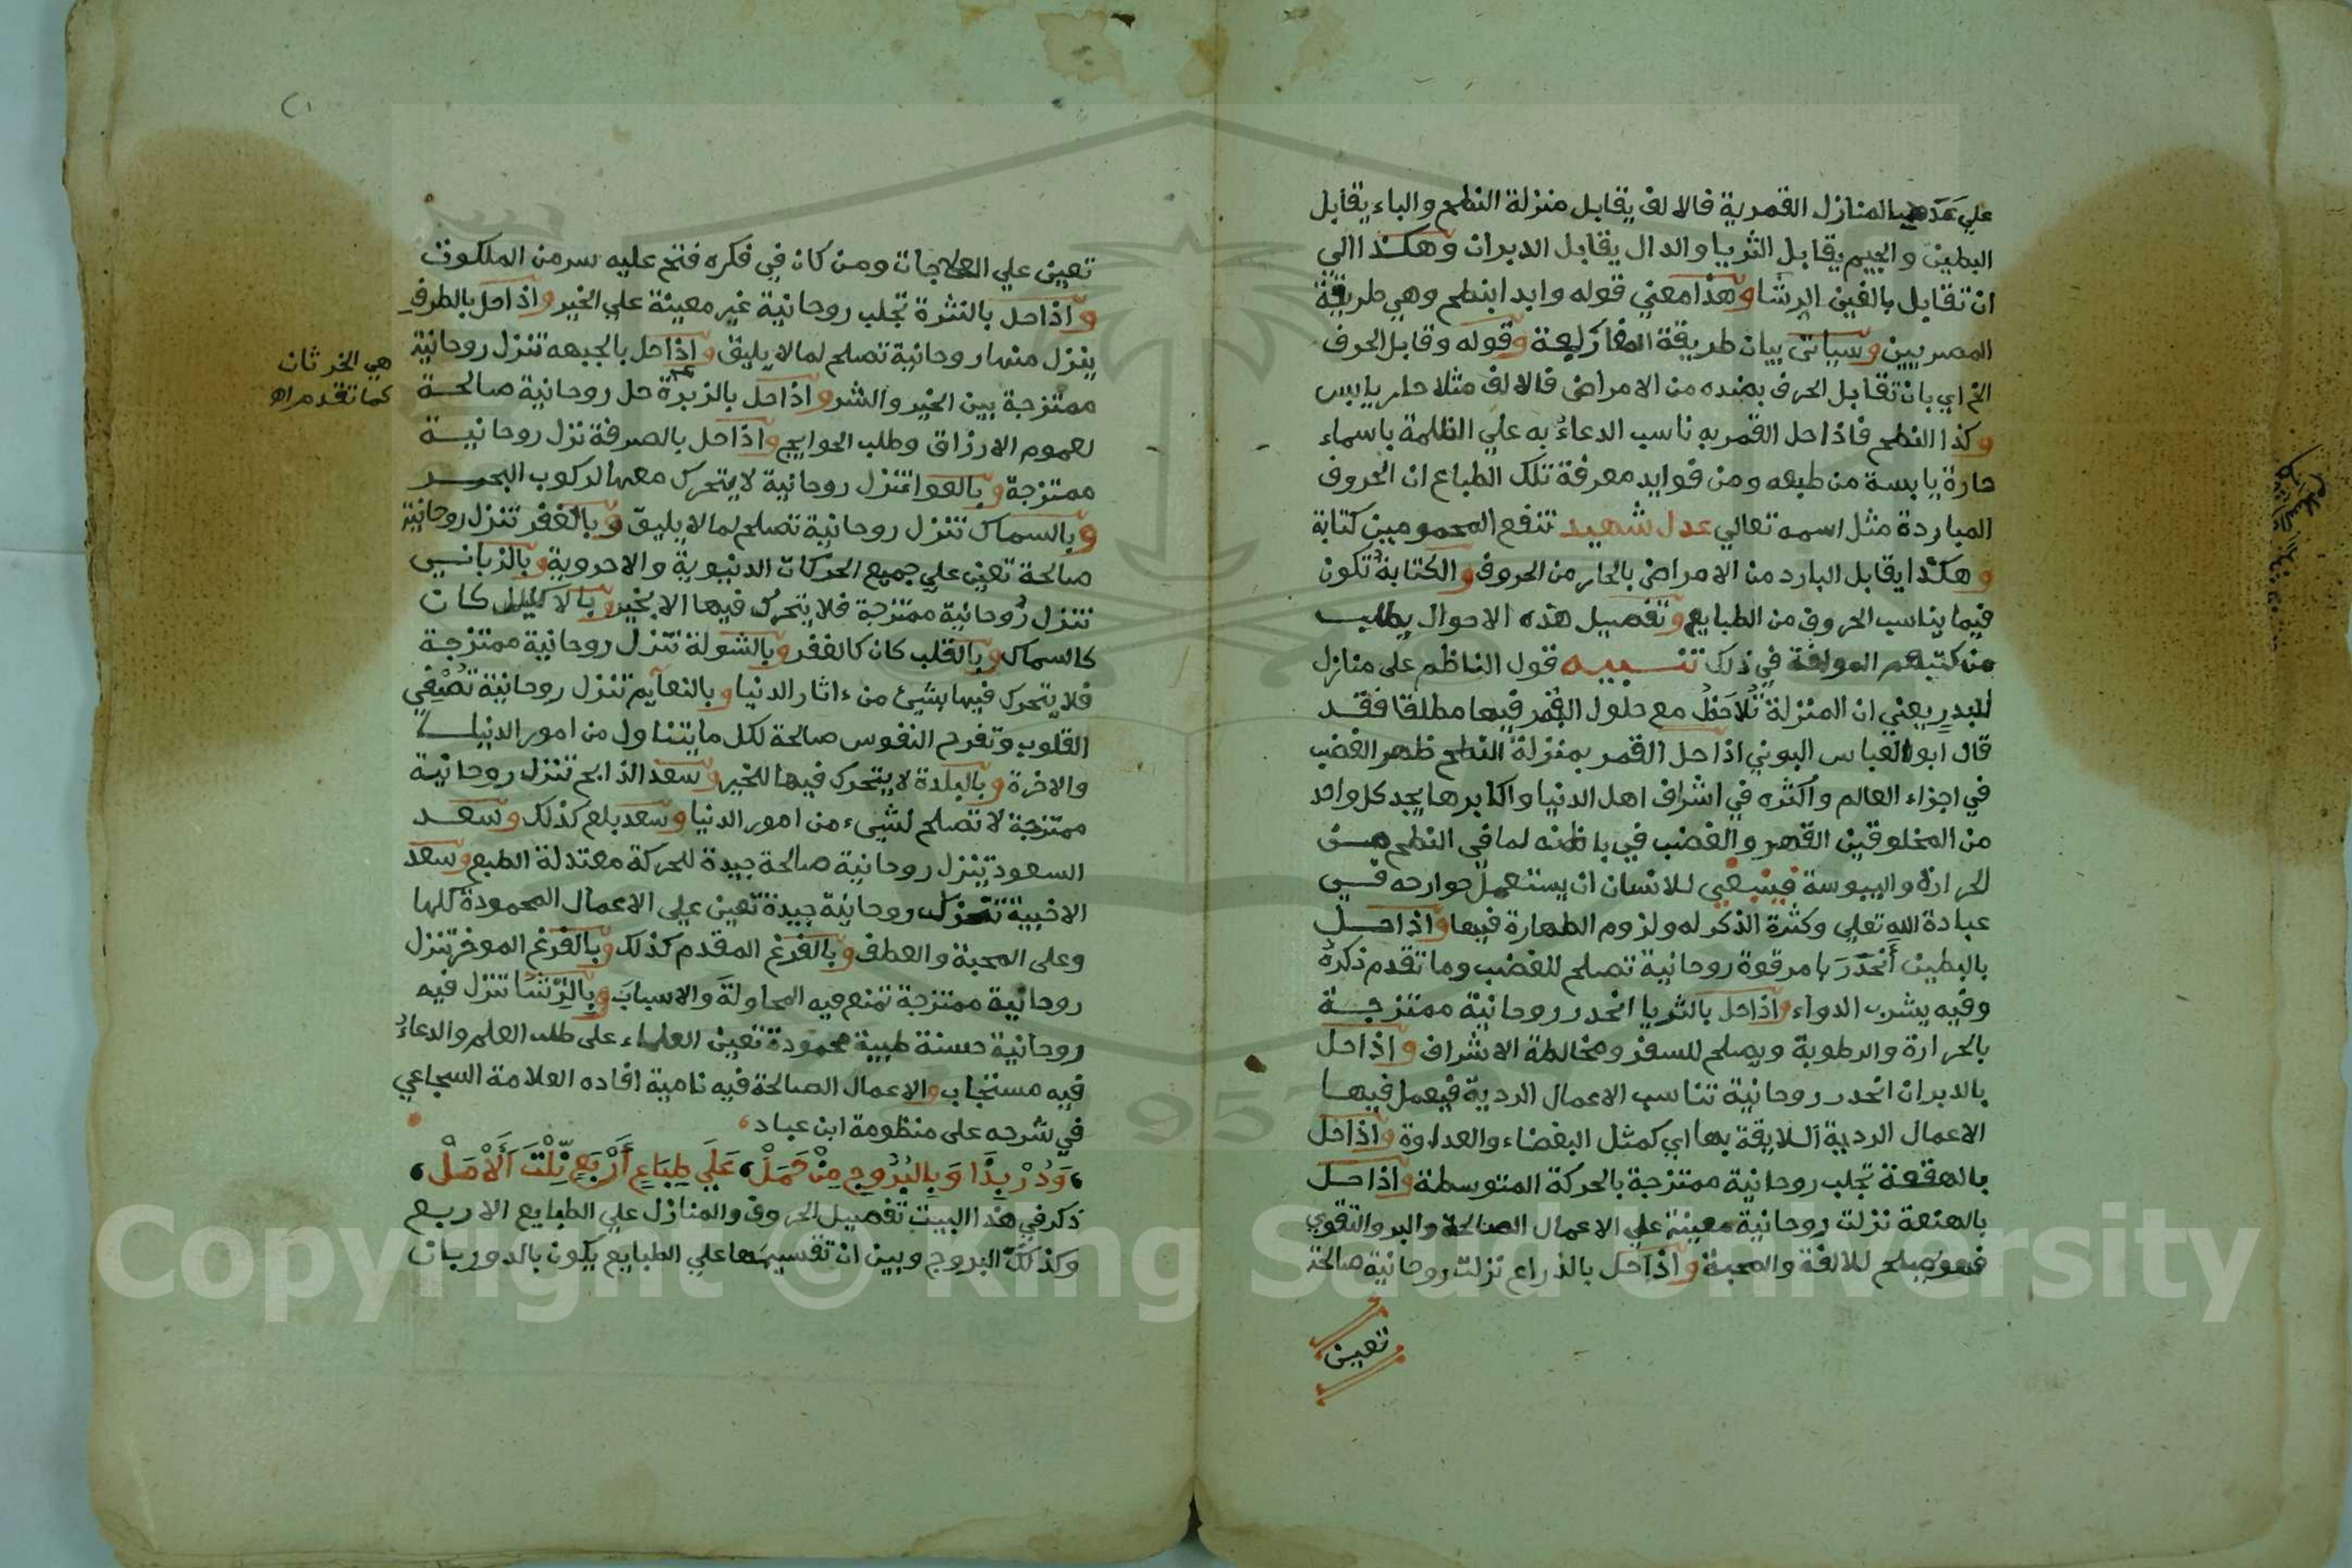 علي عدد المنازل القمرية فالالف يقابل منزلة النطح والباء يقابل
البطين والجيم يقابل الثريا والدال يقابل الدبران وهكذا الي
ان تقابل بالغين الرشا وهذا معني قوله وابدا بنطح وهي طريقة
المصريين وسياتي بيان طريقة المغاربة وقوله وقابل الحرف
الخ اي بان تقابل الحرف بضده من الامراض فالالف مثلا حار يابس
وكذا النطح فاذا حل القمر به ناسب الدعاء به علي الظلمة باسماء
حارة يابسة من طبعه ومن فوايد معرفة تلك الطباع ان الحروف
الباردة مثل اسمه تعالي عدل شهيد تنفع المحمومين كتابة
وهكذا يقابل البارد من الامراض بالحار من الحروف والكتابة تكون
فيما يناسب الحروف من الطبايع وتفصيل هذه الاحوال يطلب
من كتبهم المولفة في ذلك تنبيه قول الناظم على منازل
لبدر يعني ان المنزلة تُلاحَظُ مع حلول القمر فيها مطلقا فقد
قال ابو العباس البوني اذا حل القمر بمنزلة النطح ظهر الغضب
في اجزاء العالم واكثره في اشراف اهل الدنيا واكابرها يجد كل واحد
من المخلوقين القهر والغضب في باطنه لما في النطح من
الحرارة واليبوسة فينبغي للانسان ان يستعمل جوارحه في
عبادة الله تعلي وكثرة الذكر له ولزوم الطهارة فيها واذا حل
بالبطين أنحَدَرَ بامر قوة روحانية تصلح للغضب وما تقدم ذكره
وفيه يشرب الدواء واذا حل بالثريا انحدر روحانية ممتزجة
بالحرارة والرطوبة ويصلح للسفر ومخالطة الاشراف واذا حل
بالدبران انحدر روحانية تناسب الاعمال الردية فيعمل فيها
الاعمال الردية اللايقة بها اي كمثل البغضاء والعداوة واذا حل
بالهقعة تجلب روحانية ممتزجة بالحركة المتوسطة واذا حل
بالهنعة نزلت روحانية معينة علي الاعمال الصالحة والبر والتقوي
فهو يصلح للالفة والمحبة واذا حل بالذراع نزلت روحانية صالحة
تعين
تعين علي العلاجات ومن كان في فكره فتح عليه سر من الملكوت
واذا حل بالنثرة تجلب روحانية غير معينة علي الخير واذا حل بالطرف
ينزل منها روحانية تصلح لما لا يليق واذا حل بالجبهه تنزل روحانية
ممتزجة بين الخير والشر واذا حل بالزبرة حل روحانية صالحة
هي الخرثان
كما تقدم اه
لعموم الارزاق وطلب الحوايج واذا حل بالصرفة نزل روحانية
ممتزجة وبالعوا تنزل روحانية لا يتحرك معها لركوب البحر
وبالسماك تنزل روحانية تصلح لما لا يليق وبالغفر تنزل روحانية
صالحة تعين علي جميع الحركات الدنيوية والاخروية وبالزباني
تنزل روحانية ممتزجة فلا يتحرك فيها الا بخير وبالاكليل كان
كالسماك وبالقلب كان كالغفر وبالشولة تنزل روحانية ممتزجة
فلا يتحرك فيها بشيئ من ءاثار الدنيا وبالنعايم تنزل روحانية تصفي
القلوب وتفرح النفوس صالحة لكل ما يتناول من امور الدنيا
والاخرة وبالبلدة لا يتحرك فيها للخير وسعد الذابح تنزل روحانية
ممتزجة لا تصلح لشيء من امور الدنيا وسعد بلع كذلك وسعد
السعود ينزل روحانية صالحة جيدة للحركة معتدلة الطبع وسعد
الاخبية تنزل روحانية جيدة تعين علي الاعمال المحمودة كلها
وعلى المحبة والعطف وبالفرغ المقدم كذلك وبالفرغ الموخر تنزل
روحانية ممتزجة تمنع فيه المحاولة والاسباب وبالرّشا تنزل فيه
روحانية حسنة طيبة محمودة تعين العلماء على طلب العلم والدعاء
فيه مستجاب والاعمال الصالحة فيه نامية افاده العلامة السجاعي
في شرحه على منظومة ابن عباد
وَدُرْ بِذَا وَبِالبُرُوجِ مِنْ حَمَلْ عَلَي طِبَاعٍ أَرْبَعٍ نِلْتَ اَلأَمَلْ
ذكر في هذا البيت تفصيل الحروف والمنازل علي الطبايع الاربع
وكذلك البروج وبين ان تقسيمها علي الطبايع يكون بالدور بان
Copyright © King Saud University